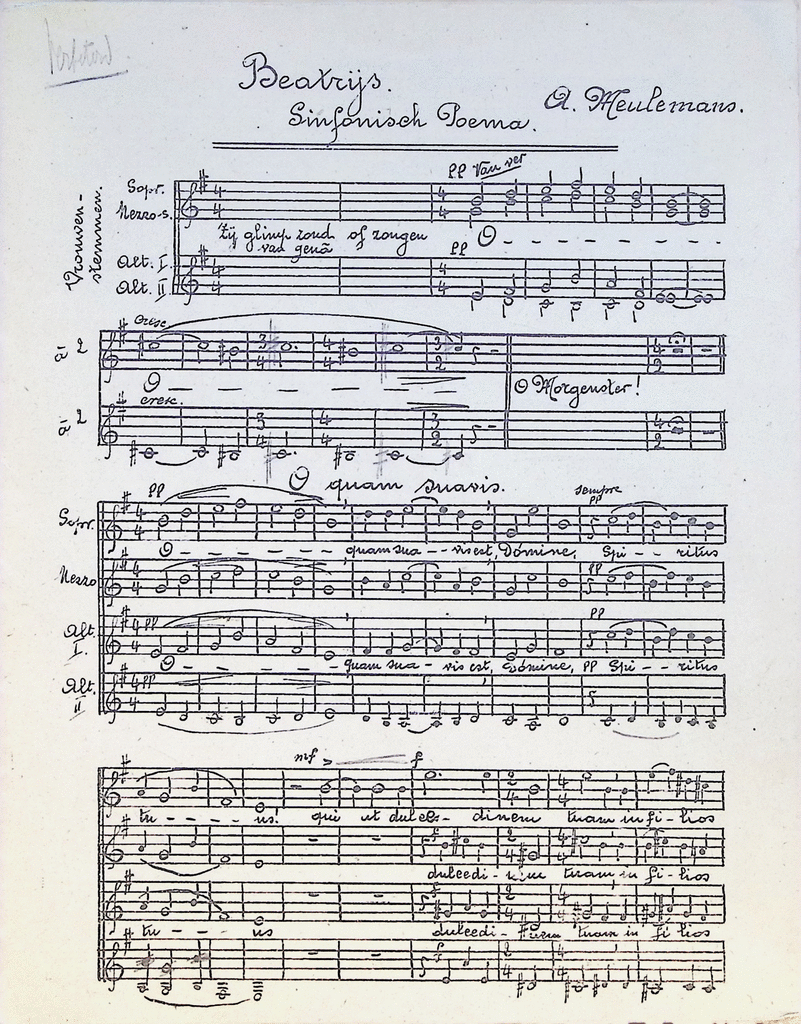 Beatrijs.
A. Meulemans.
Sinfonisch Poema.
pp Van ver
Vrouwen-
stemmen.
Sopr.
Mezzo-s.
Zij glimp zond of zongen
van genâ
pp O - - - - - -
Alt. I
Alt. II
cresc.
à 2
O - - - - -
cresc.
O Morgenster!
à 2
O quam suavis.
pp
sempre
pp
Sopr.
O - - - - - - quam sua - - vis est, Domine, Spi - - ritus
Mezzo
pp
pp
pp
Alt.
I.
O - - - - - - quam sua - vis est, Domine, pp Spi - - ritus
Alt.
II
pp
mf > f
tu - - - - us! qui ut dulce - dinem tuam in fi - lios
dulcedi - nem tuam in fi - lios
tu - - - us dulcedi - nem tuam in fi lios